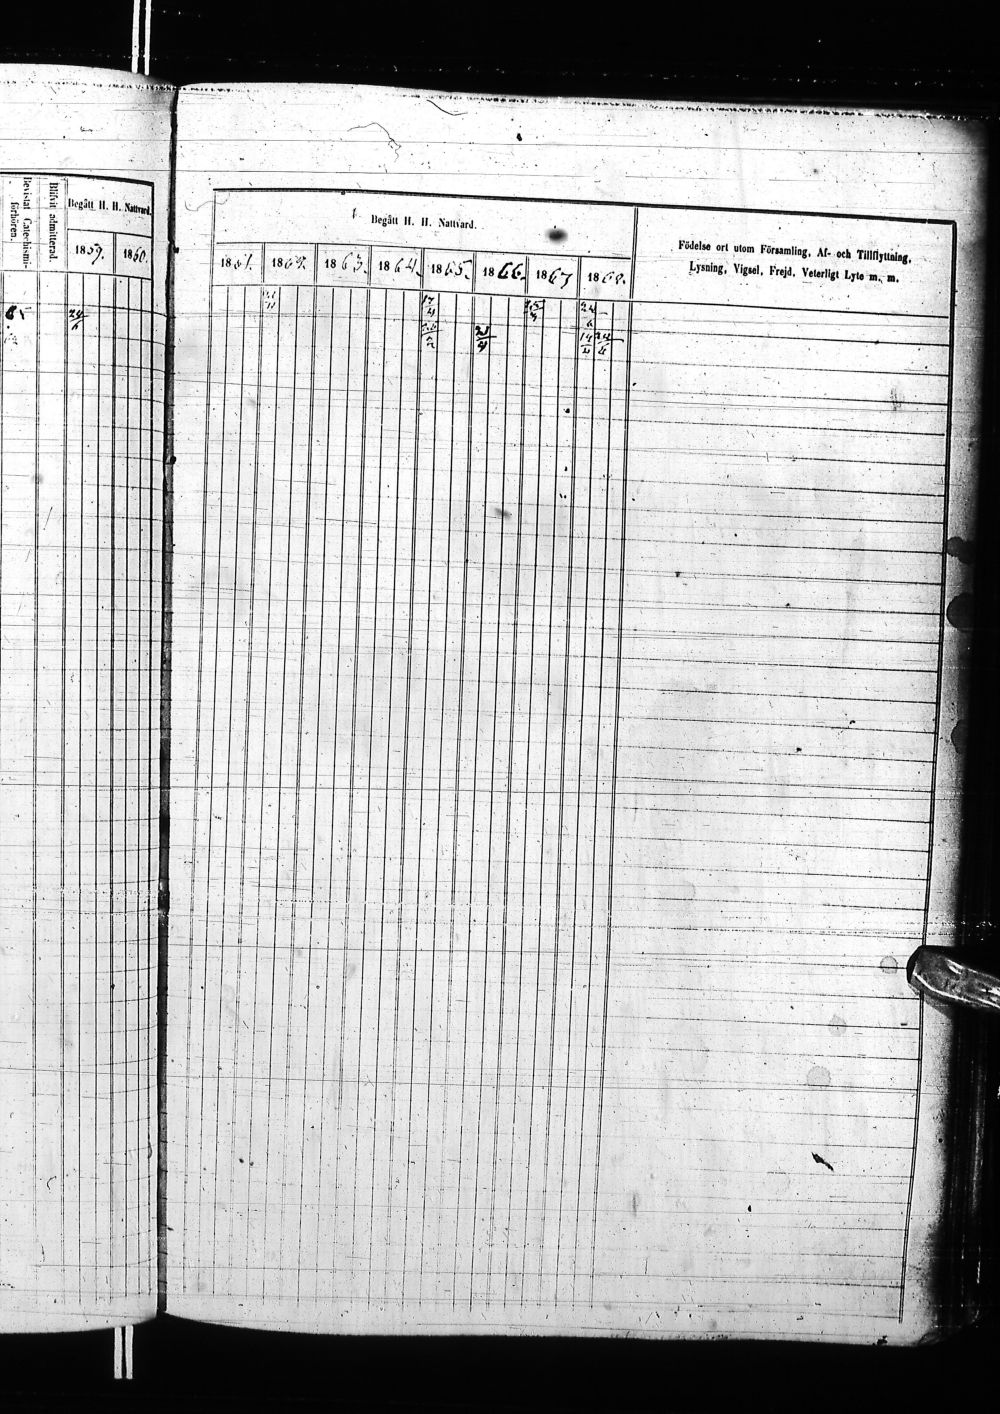 Bevistat Catechismi-
förhören.
Blifvit admitterad.
Begått H. H. Nattvard.
1859. 1860.
24/6
Begått H. H. Nattvard.
1861. 1862. 1863. 1864. 1865. 1866. 1867. 1868.
Födelse ort utom Församling, Af- och Tillflyttning,
Lysning, Vigsel, Frejd, Veterligt Lyte m. m.
17/4 24/6
23/4 24/6